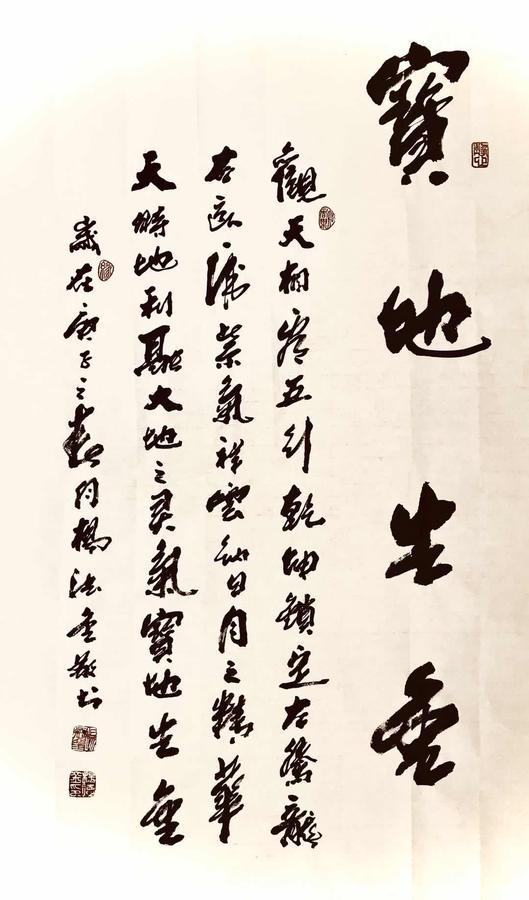 寶地生金
觀天相察五行乾坤鎖定左騰龍
右虎紫氣祥雲日月之精華
天時地利聚大地之灵氣寶地生金
歲在庚子之春月楊法金敬书